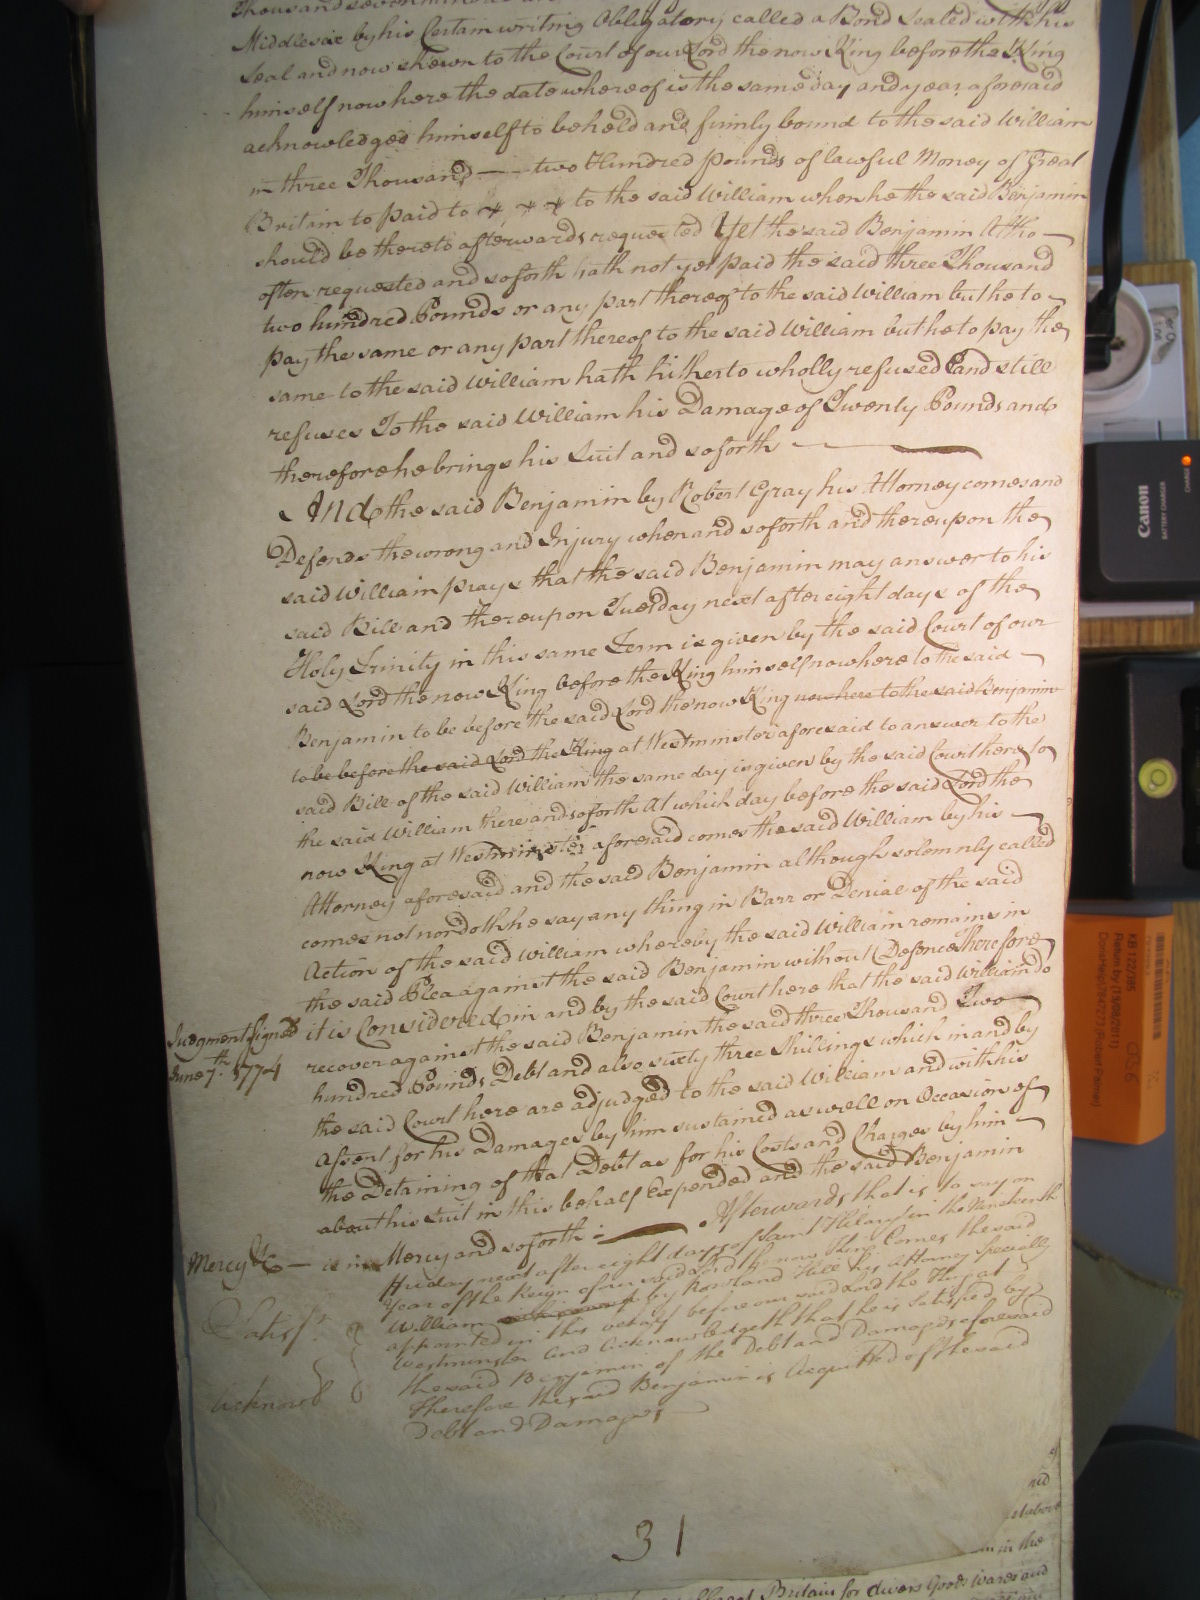 Thousand seven hundred and
Middlesex by his Certain writing Obligatory called a Bond Sealed with his
Seal and now shewn to the Court of our Lord the now King before the King
himself now here the date whereof is the same day and year aforesaid
acknowledged himself to be held and firmly bound to the said William
in three Thousand — two Hundred pounds of lawful Money of Great
Britain to paid to to the said William when he the said Benjamin
should be thereto afterwards requested Yet the said Benjamin Altho
often requested and so forth hath not yet paid the said three Thousand
two hundred Pounds or any part thereof to the said William but he to
pay the same or any part thereof to the said William but he to pay the
same to the said William hath hitherto wholly refused and still
refuses To the said William his Damage of Twenty Pounds and
therefore he brings his Suit and so forth
And the said Benjamin by Robert Gray his Attorney comes and
Defends the wrong and Injury when and so forth and thereupon the
said William prays that the said Benjamin may answer to his
said Bill and thereupon Tuesday next after eight days of the
Holy Trinity in this same Term is given by the said Court of our
said Lord the now King before the King himself now here to the said
Benjamin to be before the said Lord the now King now here to the said Benjamin
to be before the said Lord the King at Westminster aforesaid to answer to the
said Bill of the said William the same day is given by the said Court here to
the said William there and so forth At which day before the said Lord the
now King at Westminster aforesaid comes the said William by his
Attorney aforesaid and the said Benjamin although solemnly called
comes not nor doth he say any thing in Barr or Denial of the said
Action of the said William whereby the said William remains in
the said Plea against the said Benjamin without Defence Therefore
Judgment Signed it is Considered in and by the said Court here that the said William do
June 7th. 1774 recover against the said Benjamin the said three Thousand Two
hundred Pounds Debt and also sixty three Shillings which in and by
the said Court here are adjudged to the said William and with his
Assent for his Damages by him sustained as well on Occasion of
the Detaining of that Debt as for his Costs and Charges by him
about his Suit in this behalf Expended and the said Benjamin
Mercy &c — is in Mercy and so forth: — Afterwards that is to say on
Friday next after eight days of Saint Hilary in the Nineteenth
Year of the Reign of our said Lord the now King Comes the said
William by Rowland Hill his attorney specially
Satisfn appointed in this behalf before our said Lord the King at
Westminster and Acknowledgeth that he is Satisfied by
the said Benjamin of the Debt and Damages aforesaid
Acknowd Therefore the said Benjamin is Acquitted of the said
Debt and Damages
31
and
above
in the
Britain for divers Goods Wares and
Canon
BATTERY CHARGER
CHARGE